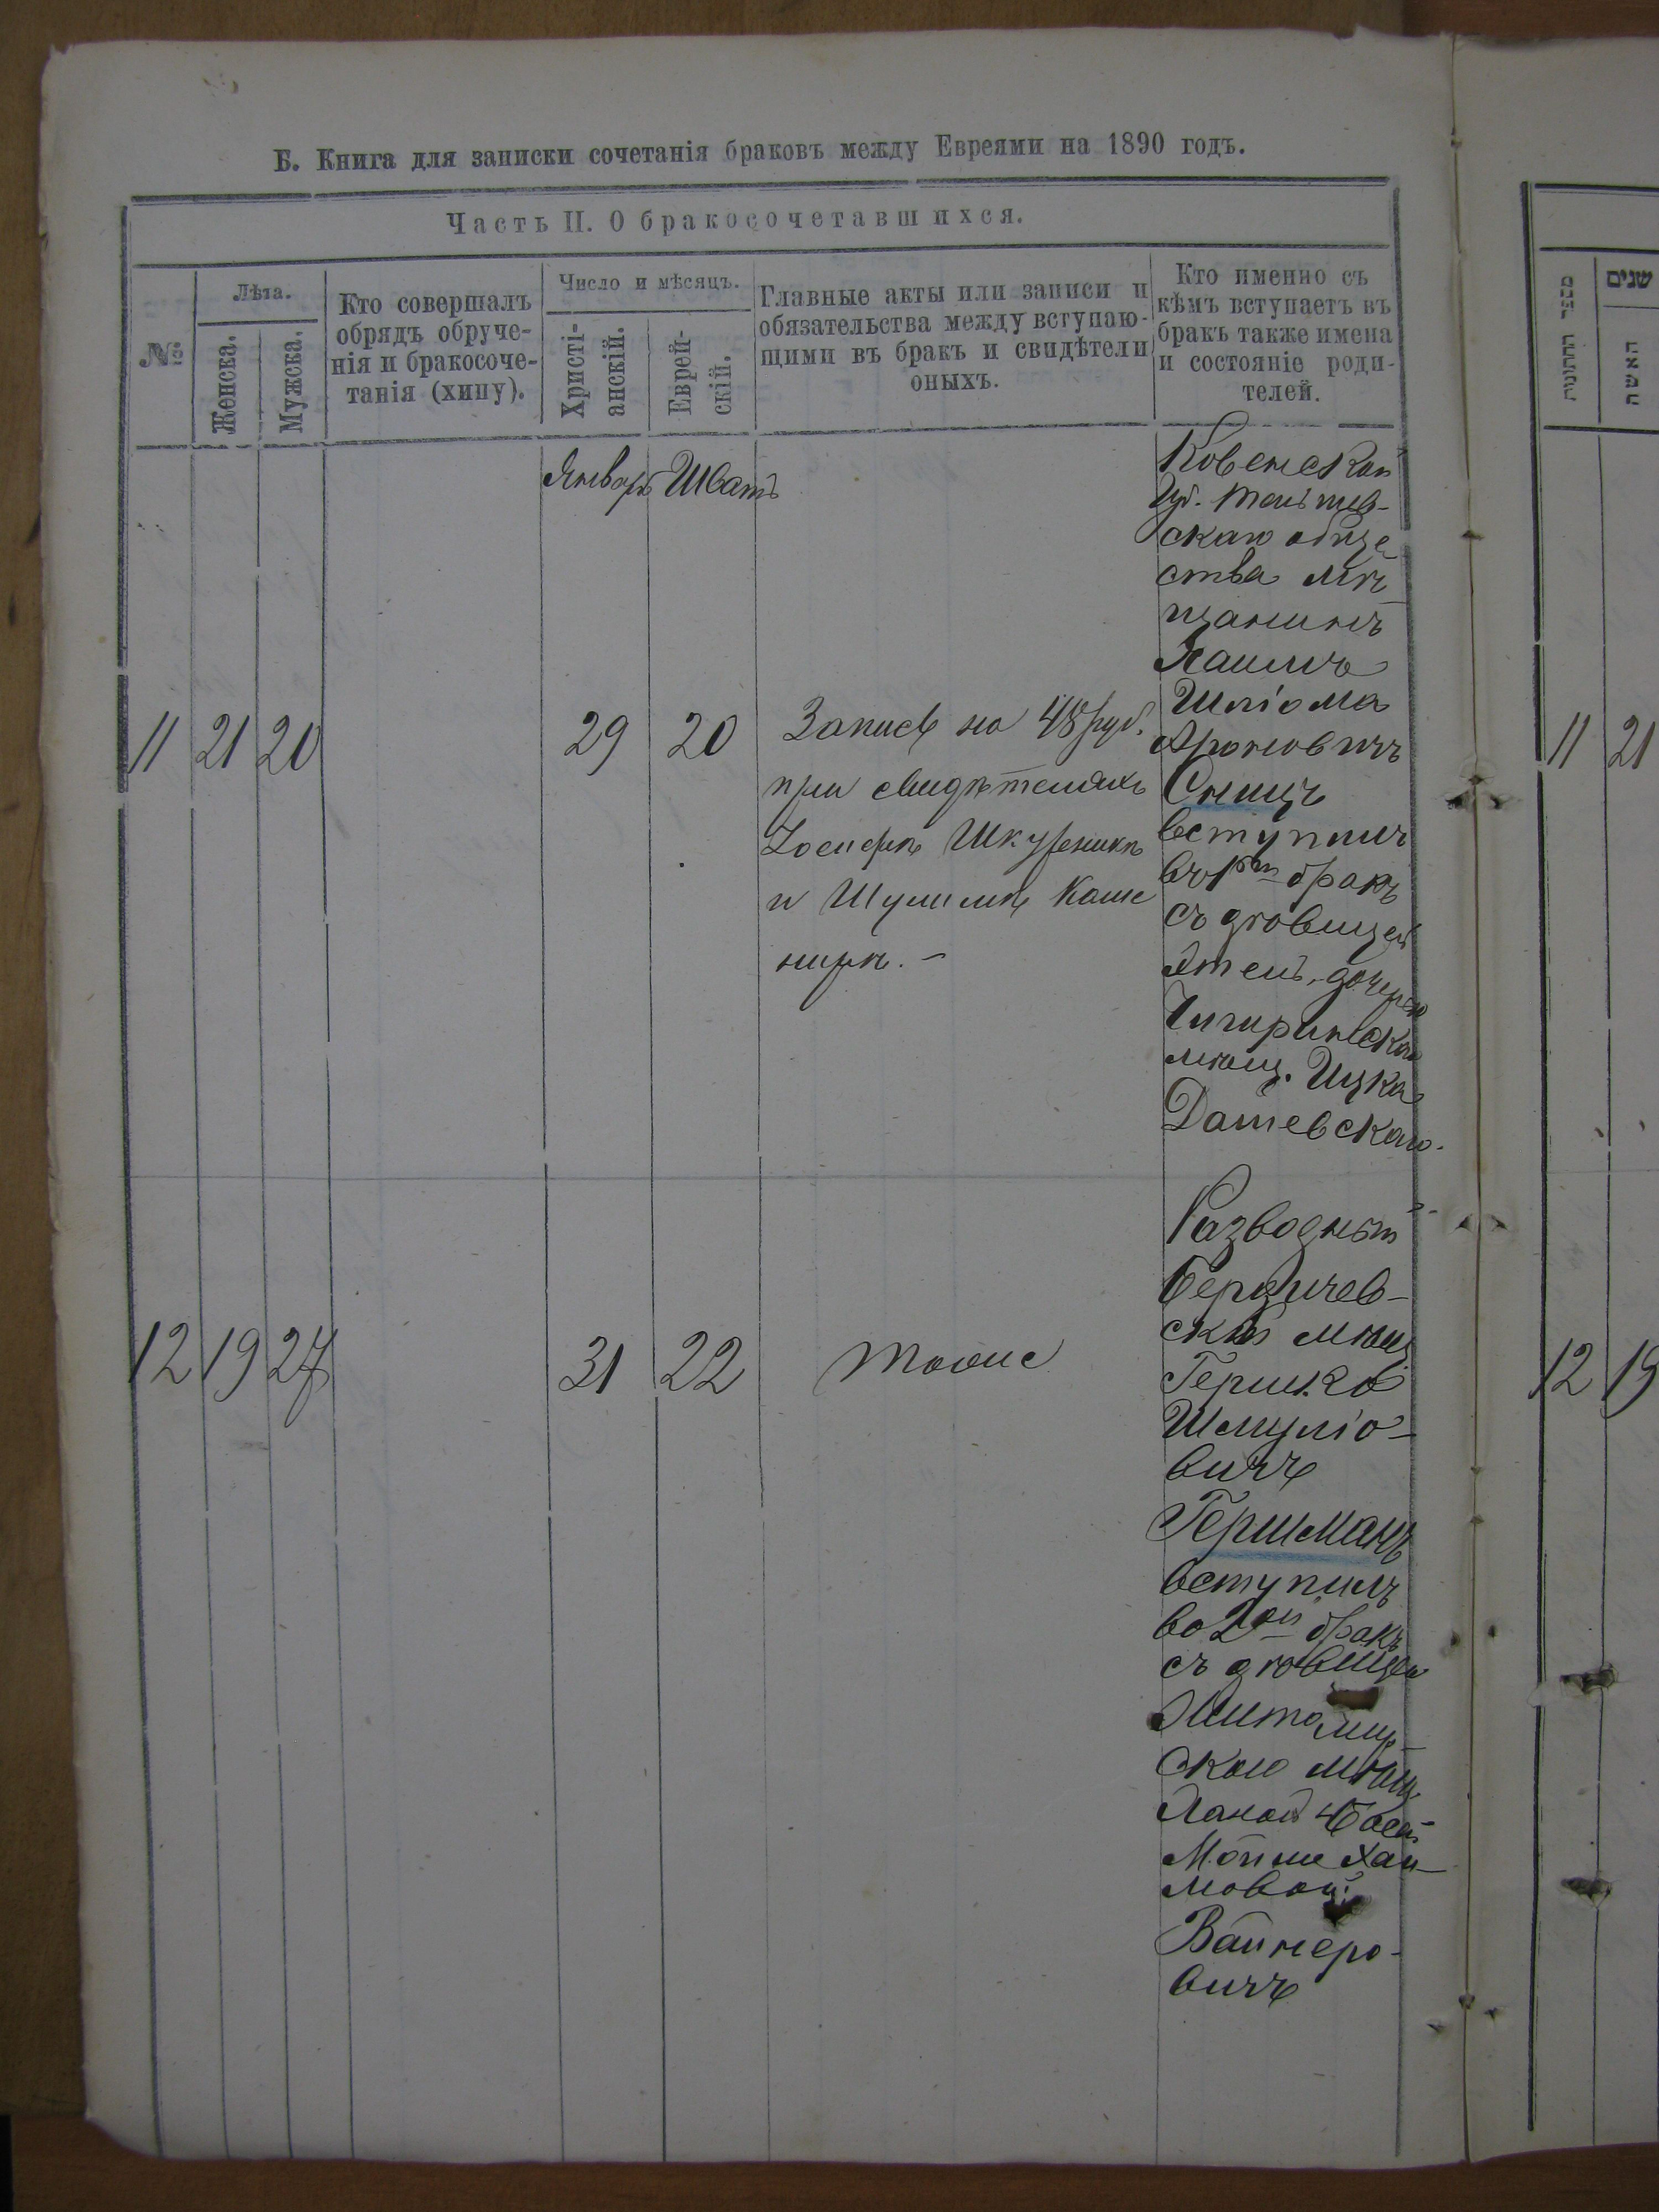 Б. Книга для записки сочетанія браковъ между Евреями на 1890 годъ.
Часть II. О бракосочетавшихся.
№
Лѣта.
Женска.
Мужска.
Кто совершалъ
обрядъ обруче-
нія и бракосоче-
танія (хипу).
Число и мѣсяцъ.
Христі-
анскій.
Еврей-
скій.
Главные акты или записи и
обязательства между вступаю-
щими въ бракъ и свидѣтели
оныхъ.
Кто именно съ
кѣмъ вступаетъ въ
бракъ также имена
и состояніе роди-
телей.
Январь Шватъ
11 21 20
29 20
Запись на 48 руб.
при свидѣтеляхъ
Іосифѣ Шкурникѣ
и Шулимѣ Каше
нирѣ. –
Ковенской
Губ. Тельшев-
скаго обще
ства мѣ-
щанинъ
Шліома
Ароновичъ
Сницъ
вступилъ
въ 1ый бракъ
съ дѣвицей
дочерью
Чигиринскаго
мѣщ. Ицка
Дашевскаго.
12 19 27
31 22
тоже
Разводный
Бердичев-
скій мѣщ.
Гершко
Шмуліо-
вичъ
Гершманъ
вступилъ
во 2ой бракъ
съ дѣвицей
Житомир-
скою мѣщ.
Ханой Басей
Мойше Хаи-
мовой
Вайнеро-
вичъ
מספר החתונות
שנים
האשה
11 21
12 19